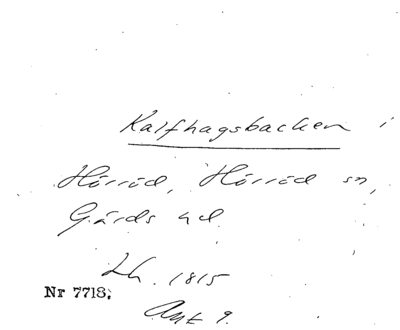 Kalfhagsbacken i
Hörröd, Hörröd sn,
Gärds hd.
Lh. 1815
Nr 7718.
Akt 9.